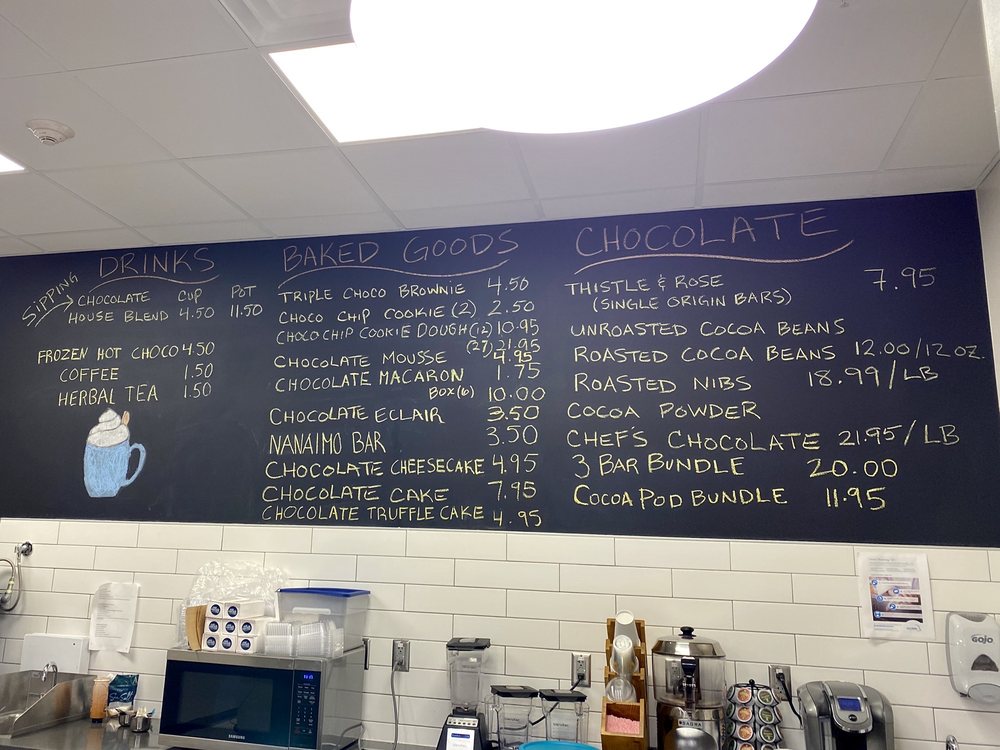 DRINKS
SIPPING
CHOCOLATE CUP POT
HOUSE BLEND 4.50 11.50
FROZEN HOT CHOCO 4.50
COFFEE 1.50
HERBAL TEA 1.50
BAKED GOODS
TRIPLE CHOCO BROWNIE 4.50
CHOCO CHIP COOKIE (2) 2.50
CHOCO CHIP COOKIE DOUGH (12) 10.95
(27) 21.95
CHOCOLATE MOUSSE 4.95
CHOCOLATE MACARON 1.75
BOX (6) 10.00
CHOCOLATE ECLAIR 3.50
NANAIMO BAR 3.50
CHOCOLATE CHEESECAKE 4.95
CHOCOLATE CAKE 7.95
CHOCOLATE TRUFFLE CAKE 4.95
CHOCOLATE
THISTLE & ROSE 7.95
(SINGLE ORIGIN BARS)
UNROASTED COCOA BEANS
ROASTED COCOA BEANS 12.00/12 OZ.
ROASTED NIBS 18.99/LB
COCOA POWDER
CHEF'S CHOCOLATE 21.95/LB
3 BAR BUNDLE 20.00
COCOA POD BUNDLE 11.95
GOJO
SAMSUNG